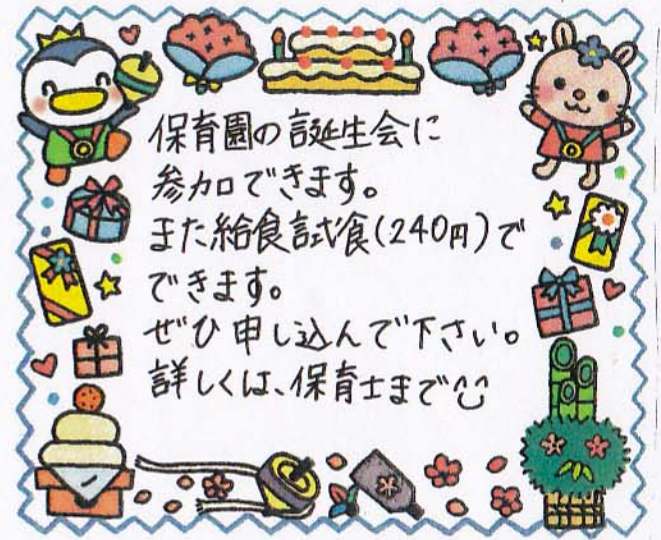 保育園の誕生会に
参加できます。
また給食試食(240円)で
できます。
ぜひ申し込んで下さい。
詳しくは、保育士まで